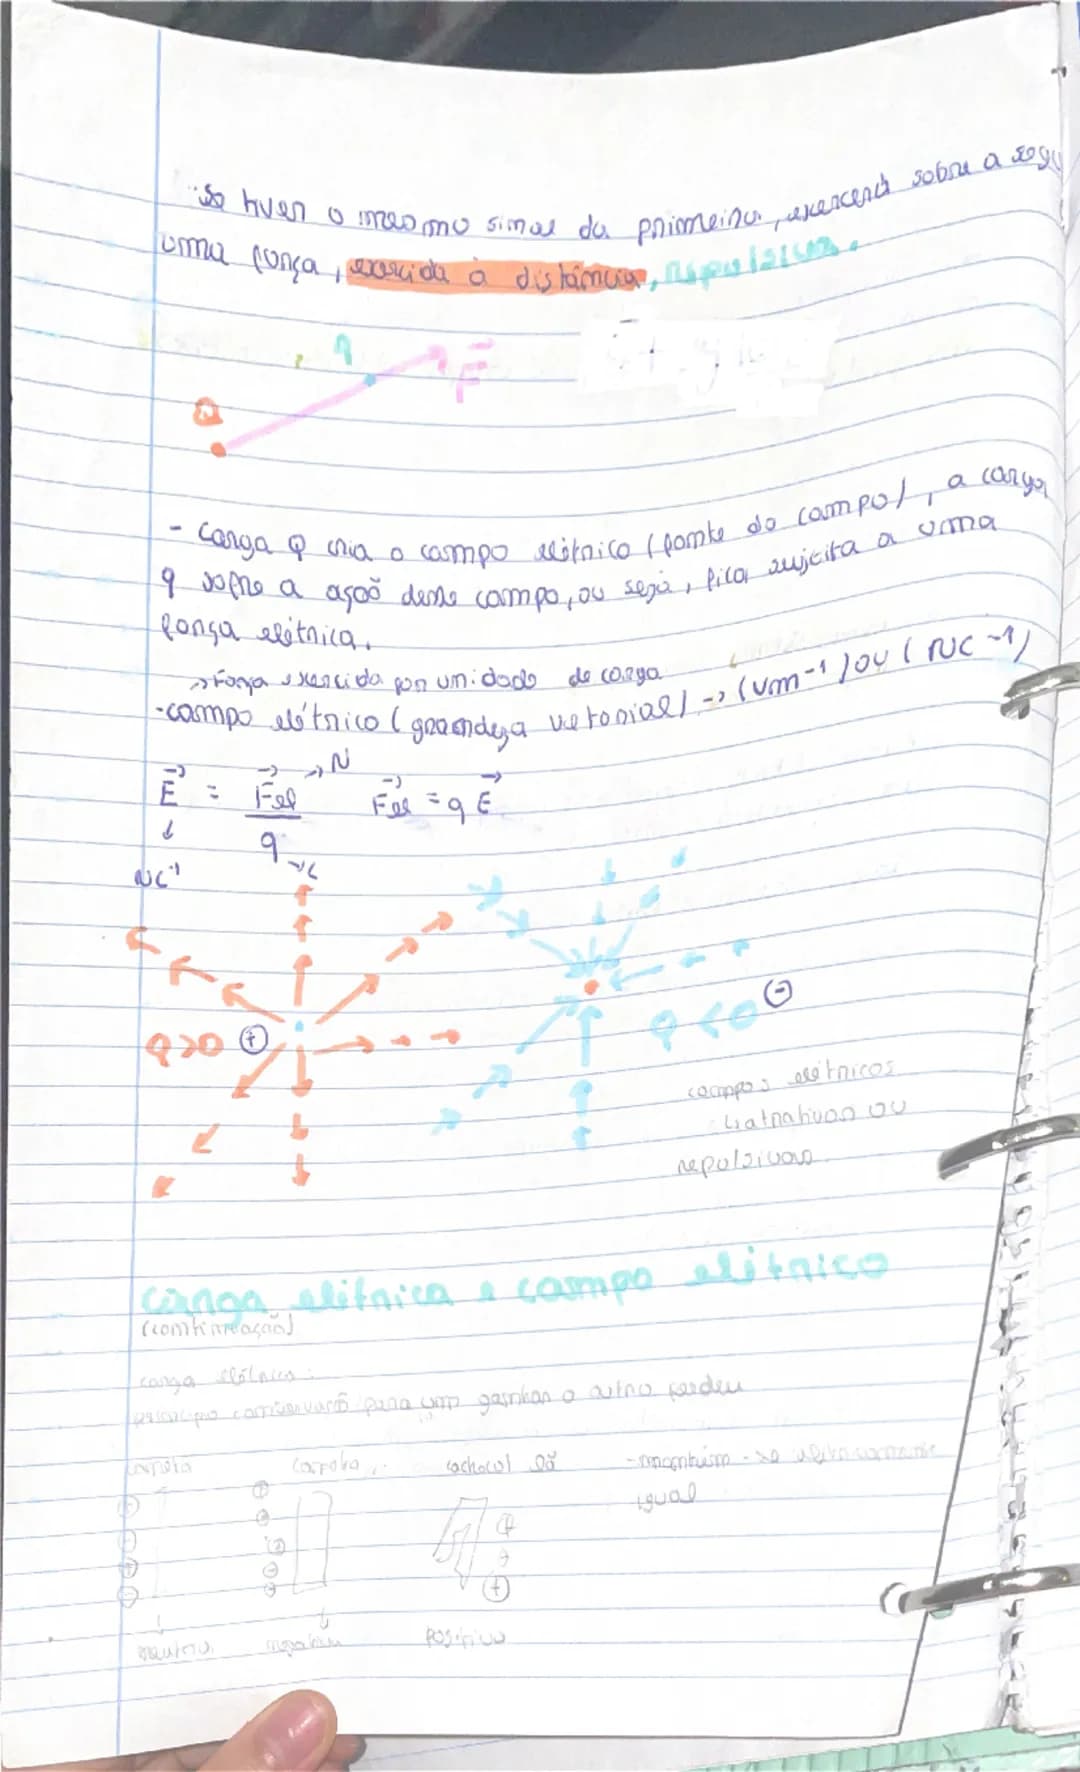 ·Se tiver o mesmo sinal da primeira, exercerá sobre a segu
uma força, exercida à distância, repulsiva.
q
F
Q
- Carga Q cria o campo elétrico (fonte do campo), a carga
q sofre a ação deste campo, ou seja, fica sujeita a uma
força elétrica.
→ Força exercida por unidade de carga
- campo elétrico (grandeza vetorial) → (Vm⁻¹) ou (NC⁻¹)
E = Fel / q → N Fel = q E
↓
NC⁻¹ → C
Q>0 (+)
Q<0 (-)
campos elétricos
↳ atrativos ou
repulsivos
Carga elétrica e campo elétrico
(continuação)
carga elétrica:
princípio conservação para um ganhar o outro perdeu
caneta caneta cachecol lã - mantém-se eletricamente
igual
neutra negativa positivo